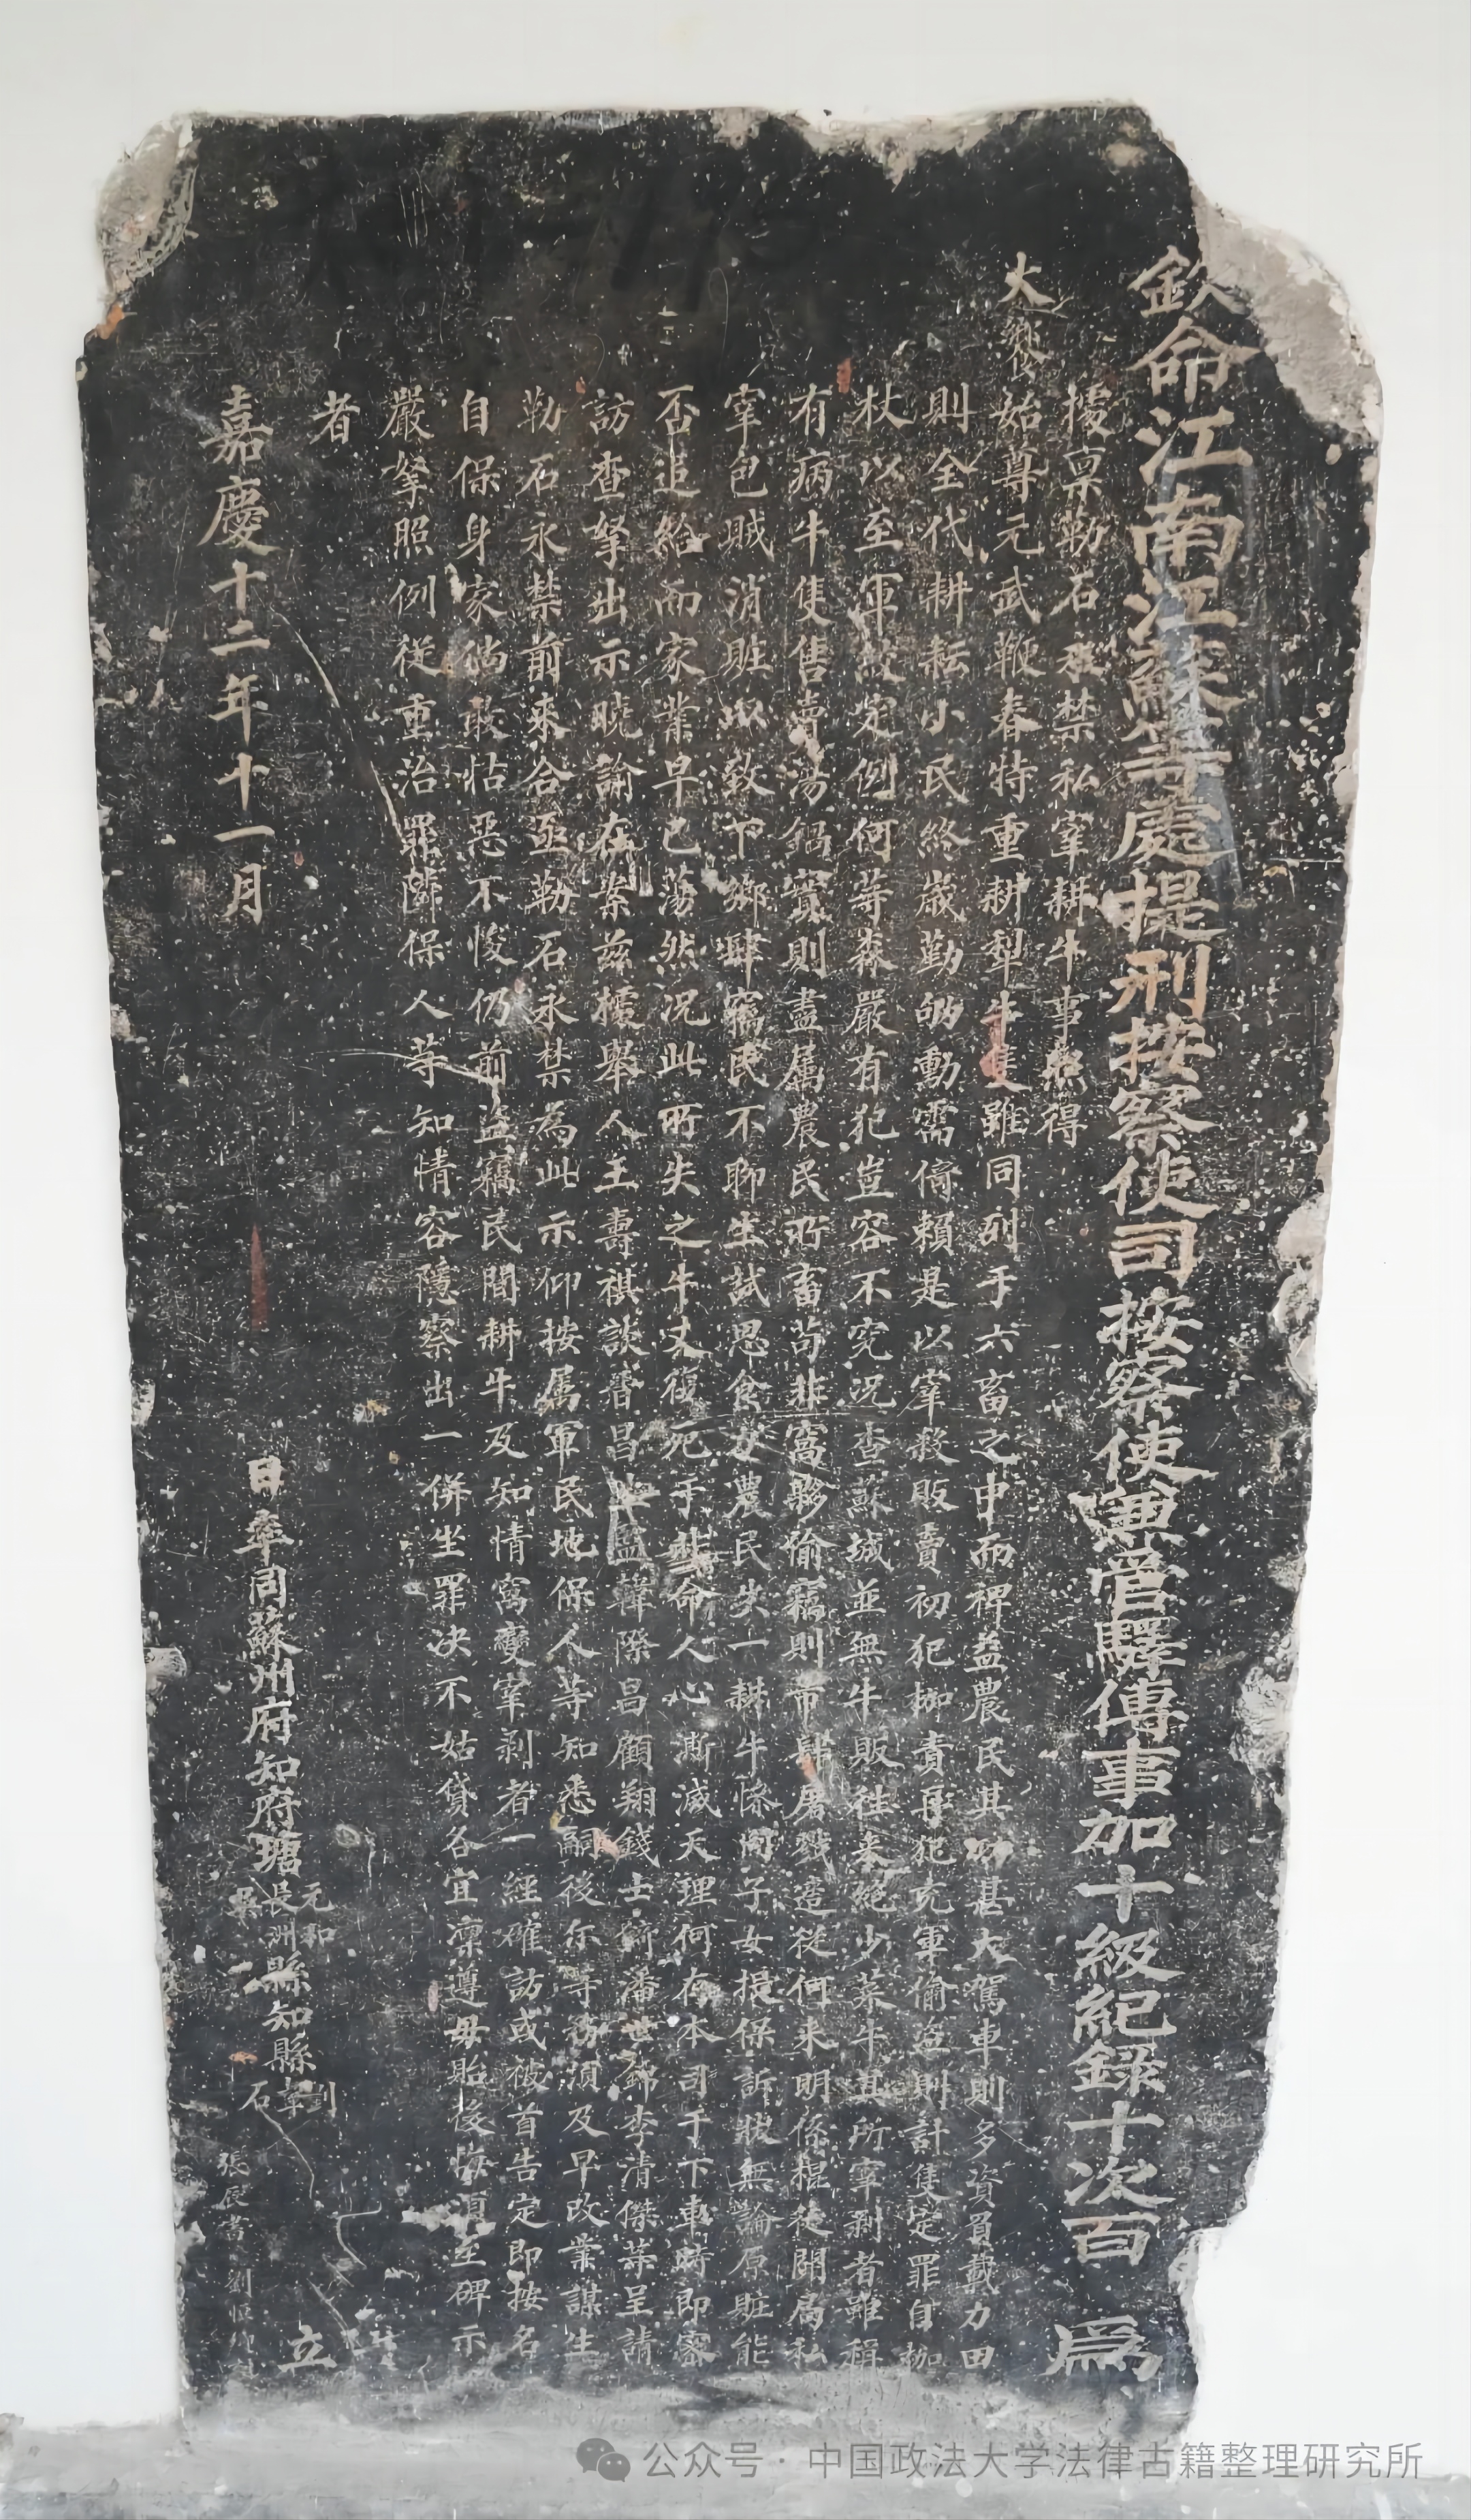 欽命江南江蘇等處提刑按察使司按察使兼管驛傳事加十級紀錄十次百 為
據稟勒石永禁私宰耕牛事照得
大祭始尊元武鞭春特重耕犁牛隻雖同列于六畜之中而裨益農民其功甚大駕車則多資負載力田
則全代耕耘小民終歲勤劬動需倚賴是以宰殺販賣初犯枷責再犯充軍偷盜則計隻定罪自枷
杖以至軍絞定例何等森嚴有犯豈容不究況查蘇城並無牛販往來絕少菜牛其所宰剥者雖稱
有病牛隻售賣湯鍋實則盡屬農民所畜苟非窩夥偷竊則市肆屠戮造從何來明係棍徒開局私
宰包賊消賍以致下鄉肆竊民不聊生試思食力農民失一耕牛慘同子女報保訴狀無論原賍能
否追給而家業早已蕩然況此所失之牛又復死于非命人心澌滅天理何存本司于下車時即密
訪查拏出示曉諭在案茲據舉人王壽祺談晉昌監韓際昌顧翔錢士錡潘世錦李清傑等呈請
勒石永禁前來合亟勒石永禁為此示仰按屬軍民地保人等知悉嗣後尔等務須及早改業謀生
自保身家倘敢怙惡不悛仍前盜竊民間耕牛及知情窩變宰剥者一經確訪或被首告定即按名
嚴拏照例從重治罪隣保人等知情容隱察出一併坐罪决不姑貸各宜凜遵毋貽後悔須至碑示
者
嘉慶十二年十一月 日率同蘇州府知府瑭元和長洲吳縣知縣劉 立石
張辰 劉恒
公众号·中国政法大学法律古籍整理研究所